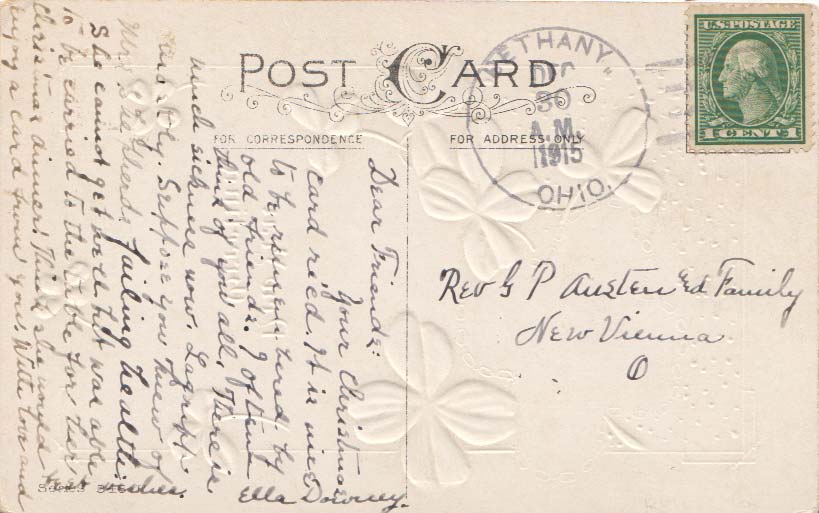 POST CARD
FOR CORRESPONDENCE
FOR ADDRESS ONLY
BETHANY
DEC
30
A.M.
1915
OHIO.
U.S. POSTAGE
1 CENT 1
Rev G P Austen & Family
New Vienna
O
Dear Friends:
Your Christmas
card rec'd. It is nice
to be remembered by
old friends. I often
think of you all. There is
much sickness now. Lagrippe
mostly. Suppose you knew of
Mrs failing health.
She cannot get well but was able
to be carried to the table for her
Christmas dinner. Think she would
enjoy a card from you. With love and
best wishes.
Ella Downey.
Series